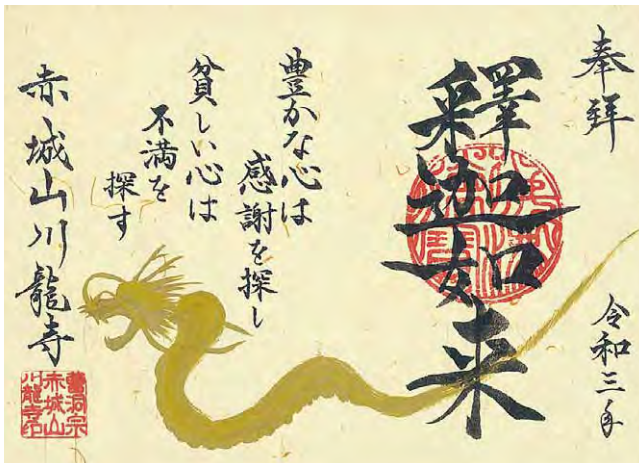 奉拝
令和三年
釋迦如来
豊かな心は
感謝を探し
貧しい心は
不満を
探す
赤城山川龍寺
曹洞宗
赤城山
川龍寺印